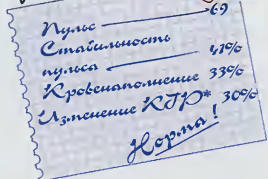 Пульс 69
Стабильность
пульса 41%
Кровенаполнение 33%
Изменение КГР* 30%
Норма!